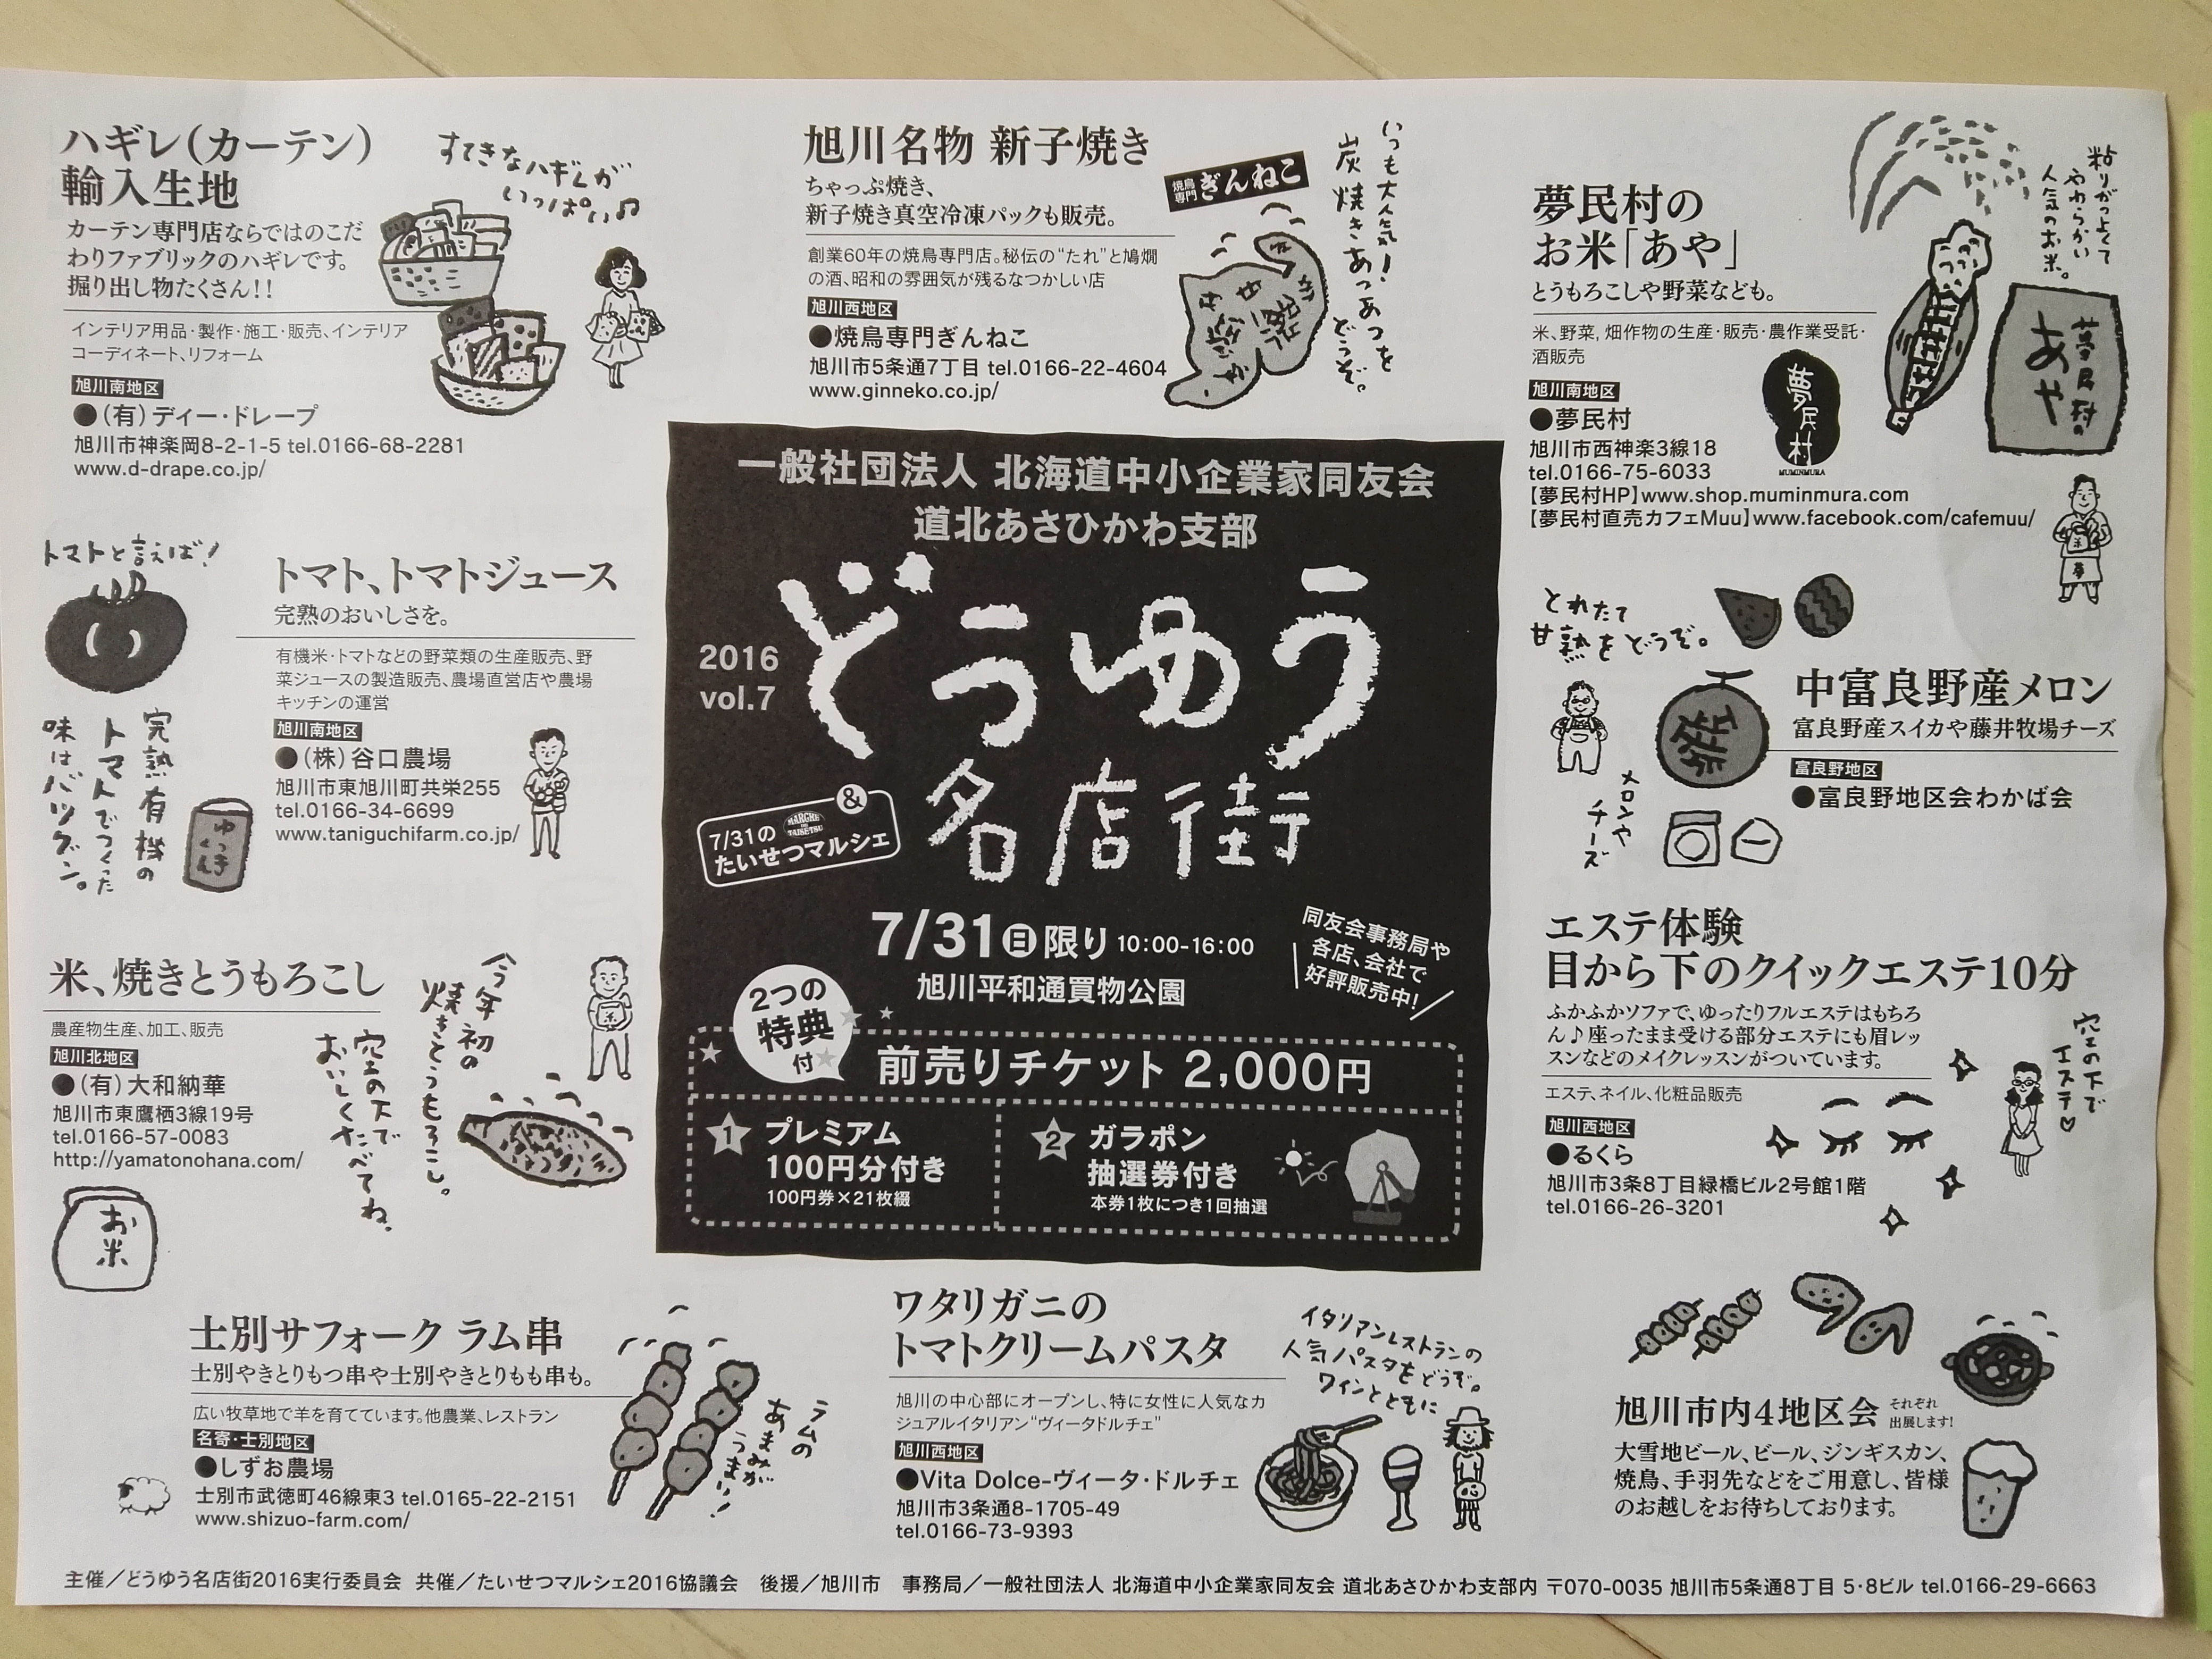 ハギレ(カーテン)
輸入生地
カーテン専門店ならではのこだ
わりファブリックのハギレです。
掘り出し物たくさん!!
インテリア用品・製作・施工・販売、インテリア
コーディネート、リフォーム
旭川南地区
●(有)ディー・ドレープ
旭川市神楽岡8-2-1-5 tel.0166-68-2281
www.d-drape.co.jp/
すてきなハギレが
いっぱい♫
旭川名物 新子焼き
ちゃっぷ焼き、
新子焼き真空冷凍パックも販売。
創業60年の焼鳥専門店。秘伝の“たれ”と鳩燗
の酒、昭和の雰囲気が残るなつかしい店
旭川西地区
●焼鳥専門ぎんねこ
旭川市5条通7丁目 tel.0166-22-4604
www.ginneko.co.jp/
焼鳥専門 ぎんねこ
いつも大人気!
炭焼きあつあつを
どうぞ。
夢民村の
お米「あや」
とうもろこしや野菜なども。
米、野菜, 畑作物の生産・販売・農作業受託・
酒販売
旭川南地区
●夢民村
旭川市西神楽3線18
tel.0166-75-6033
【夢民村HP】www.shop.muminmura.com
【夢民村直売カフェMuu】www.facebook.com/cafemuu/
夢民村
MUMINMURA
粘りがつよくて
やわらかい
人気のお米。
夢民村の
あや
米
夢
トマトと言えば!
トマト、トマトジュース
完熟のおいしさを。
有機米・トマトなどの野菜類の生産販売、野
菜ジュースの製造販売、農場直営店や農場
キッチンの運営
旭川南地区
●(株)谷口農場
旭川市東旭川町共栄255
tel.0166-34-6699
www.taniguchifarm.co.jp/
完熟有機の
トマトでつくった
味はバツグン。
ゆうき
くん
一般社団法人 北海道中小企業家同友会
道北あさひかわ支部
2016
vol.7
どうゆう
名店街
&
7/31の
MARCHE
TAISETSU
たいせつマルシェ
7/31㊐限り 10:00-16:00
旭川平和通買物公園
同友会事務局や
各店、会社で
好評販売中!
2つの
特典
付
前売りチケット 2,000円
1 プレミアム
100円分付き
100円券×21枚綴
2 ガラポン
抽選券付き
本券1枚につき1回抽選
とれたて
甘熟をどうぞ。
中富良野産メロン
富良野産スイカや藤井牧場チーズ
富良野地区
●富良野地区会わかば会
メロンや
チーズ
米、焼きとうもろこし
農産物生産、加工、販売
旭川北地区
●(有)大和納華
旭川市東鷹栖3線19号
tel.0166-57-0083
http://yamatonohana.com/
今年初の
焼きとうもろこし。
空の下で
おいしくたべてね。
米
お米
エステ体験
目から下のクイックエステ10分
ふかふかソファで、ゆったりフルエステはもちろ
ん♪座ったまま受ける部分エステにも眉レッ
スンなどのメイクレッスンがついています。
エステ、ネイル、化粧品販売
旭川西地区
●るくら
旭川市3条8丁目緑橋ビル2号館1階
tel.0166-26-3201
空の下で
エステ♡
士別サフォーク ラム串
士別やきとりもつ串や士別やきとりもも串も。
広い牧草地で羊を育てています。他農業、レストラン
名寄・士別地区
●しずお農場
士別市武徳町46線東3 tel.0165-22-2151
www.shizuo-farm.com/
ラムの
あまみが
うまい!
ワタリガニの
トマトクリームパスタ
旭川の中心部にオープンし、特に女性に人気なカ
ジュアルイタリアン“ヴィータドルチェ”
旭川西地区
●Vita Dolce-ヴィータ・ドルチェ
旭川市3条通8-1705-49
tel.0166-73-9393
イタリアンレストランの
人気パスタをどうぞ。
ワインとともに
旭川市内4地区会 それぞれ
出展します!
大雪地ビール、ビール、ジンギスカン、
焼鳥、手羽先などをご用意し、皆様
のお越しをお待ちしております。
主催/どうゆう名店街2016実行委員会 共催/たいせつマルシェ2016協議会 後援/旭川市 事務局/一般社団法人 北海道中小企業家同友会 道北あさひかわ支部内 〒070-0035 旭川市5条通8丁目 5・8ビル tel.0166-29-6663